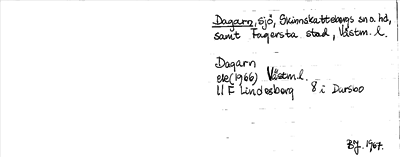 Dagarn, sjö, Skinnskattebergs sn o. hd,
samt Fagersta stad, Västm. l.
Dagarn
ek(1966) Västm.l.
11 F Lindesberg 8 i Dursbo
1967.